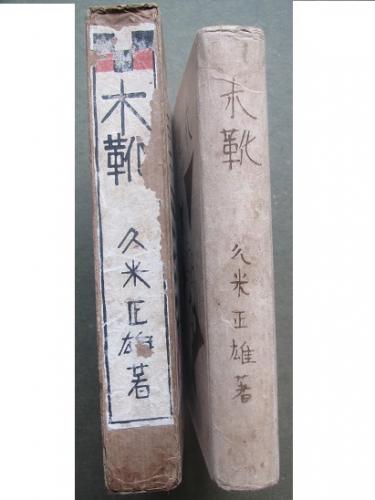 木靴
久米正雄著
木靴
久米正雄著